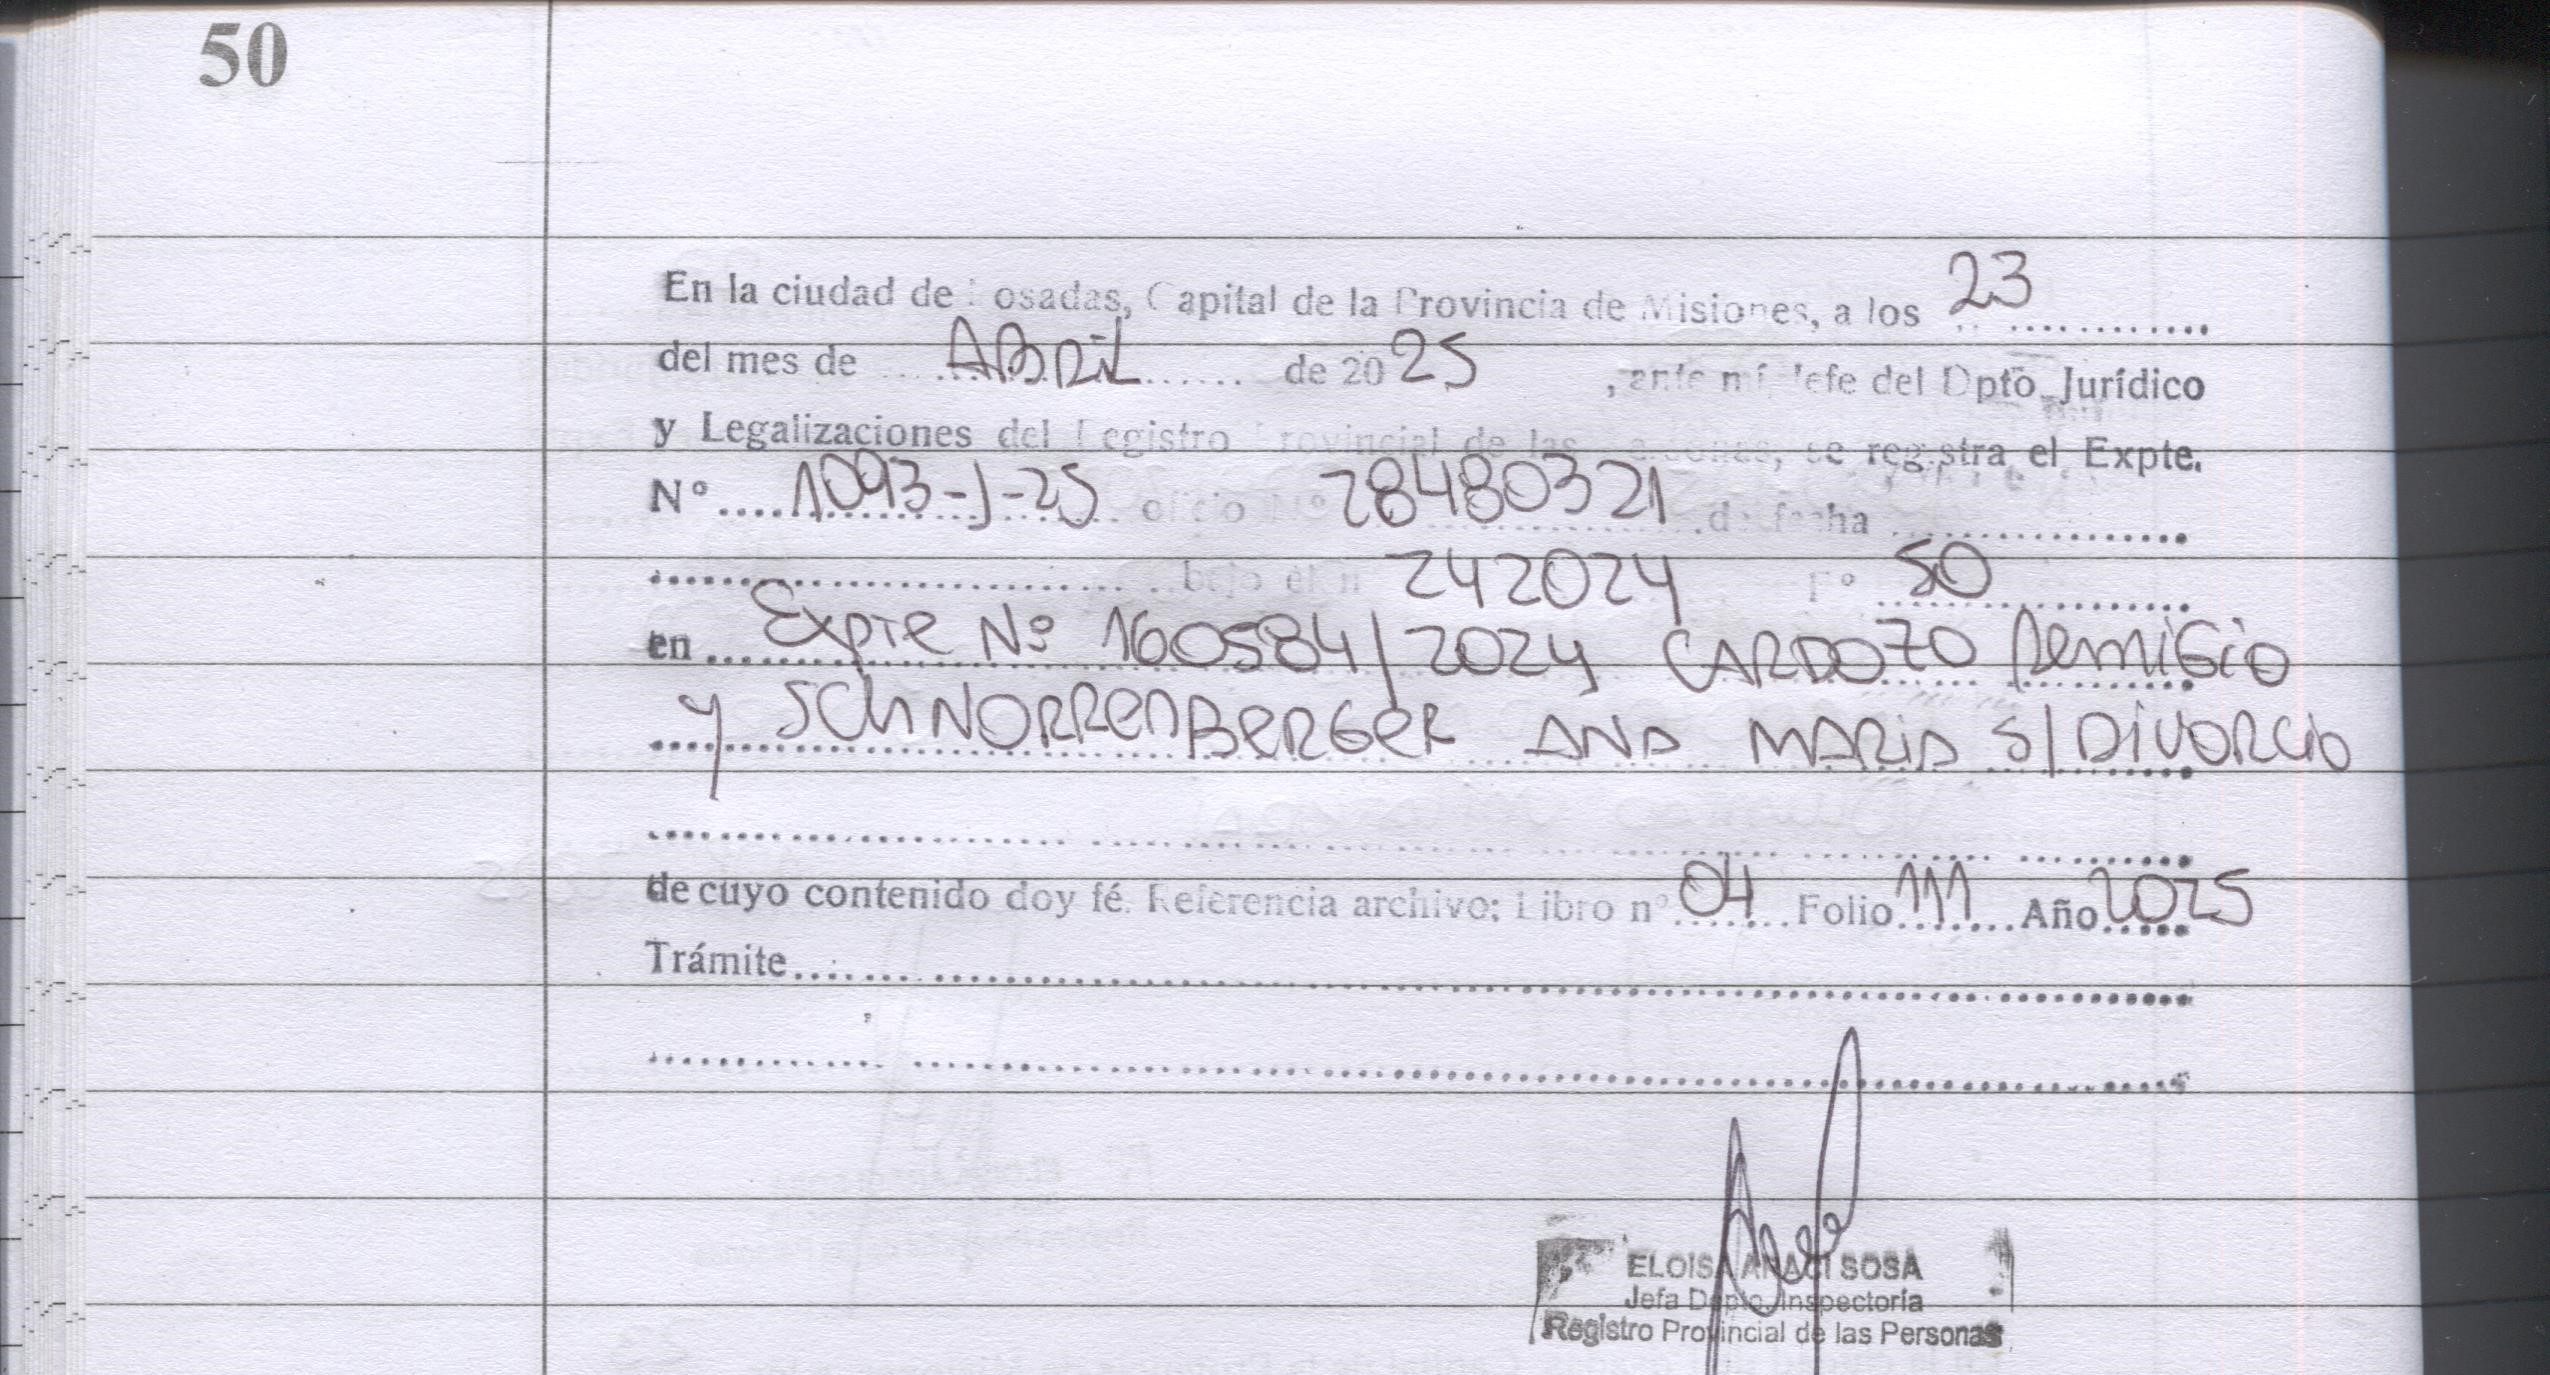 50
En la ciudad de Posadas, Capital de la Provincia de Misiones, a los 23
del mes de ABRIL de 2025, ante mí, Jefe del Dpto. Jurídico
y Legalizaciones del Registro Provincial de las Personas, se registra el Expte.
N° 1093-J-25 oficio N° 28480321 de fecha
bajo el n° 242024 F° 50
en Expte Nº 160584/2024 CARDOZO Remigio
y SCHNORRENBERGER ANA MARIA S/DIVORCIO
de cuyo contenido doy fé. Referencia archivo: Libro n° 04 Folio 111 Año 2025
Trámite
ELOISA ARACI SOSA
Jefa Dpto. Inspectoría
Registro Provincial de las Personas